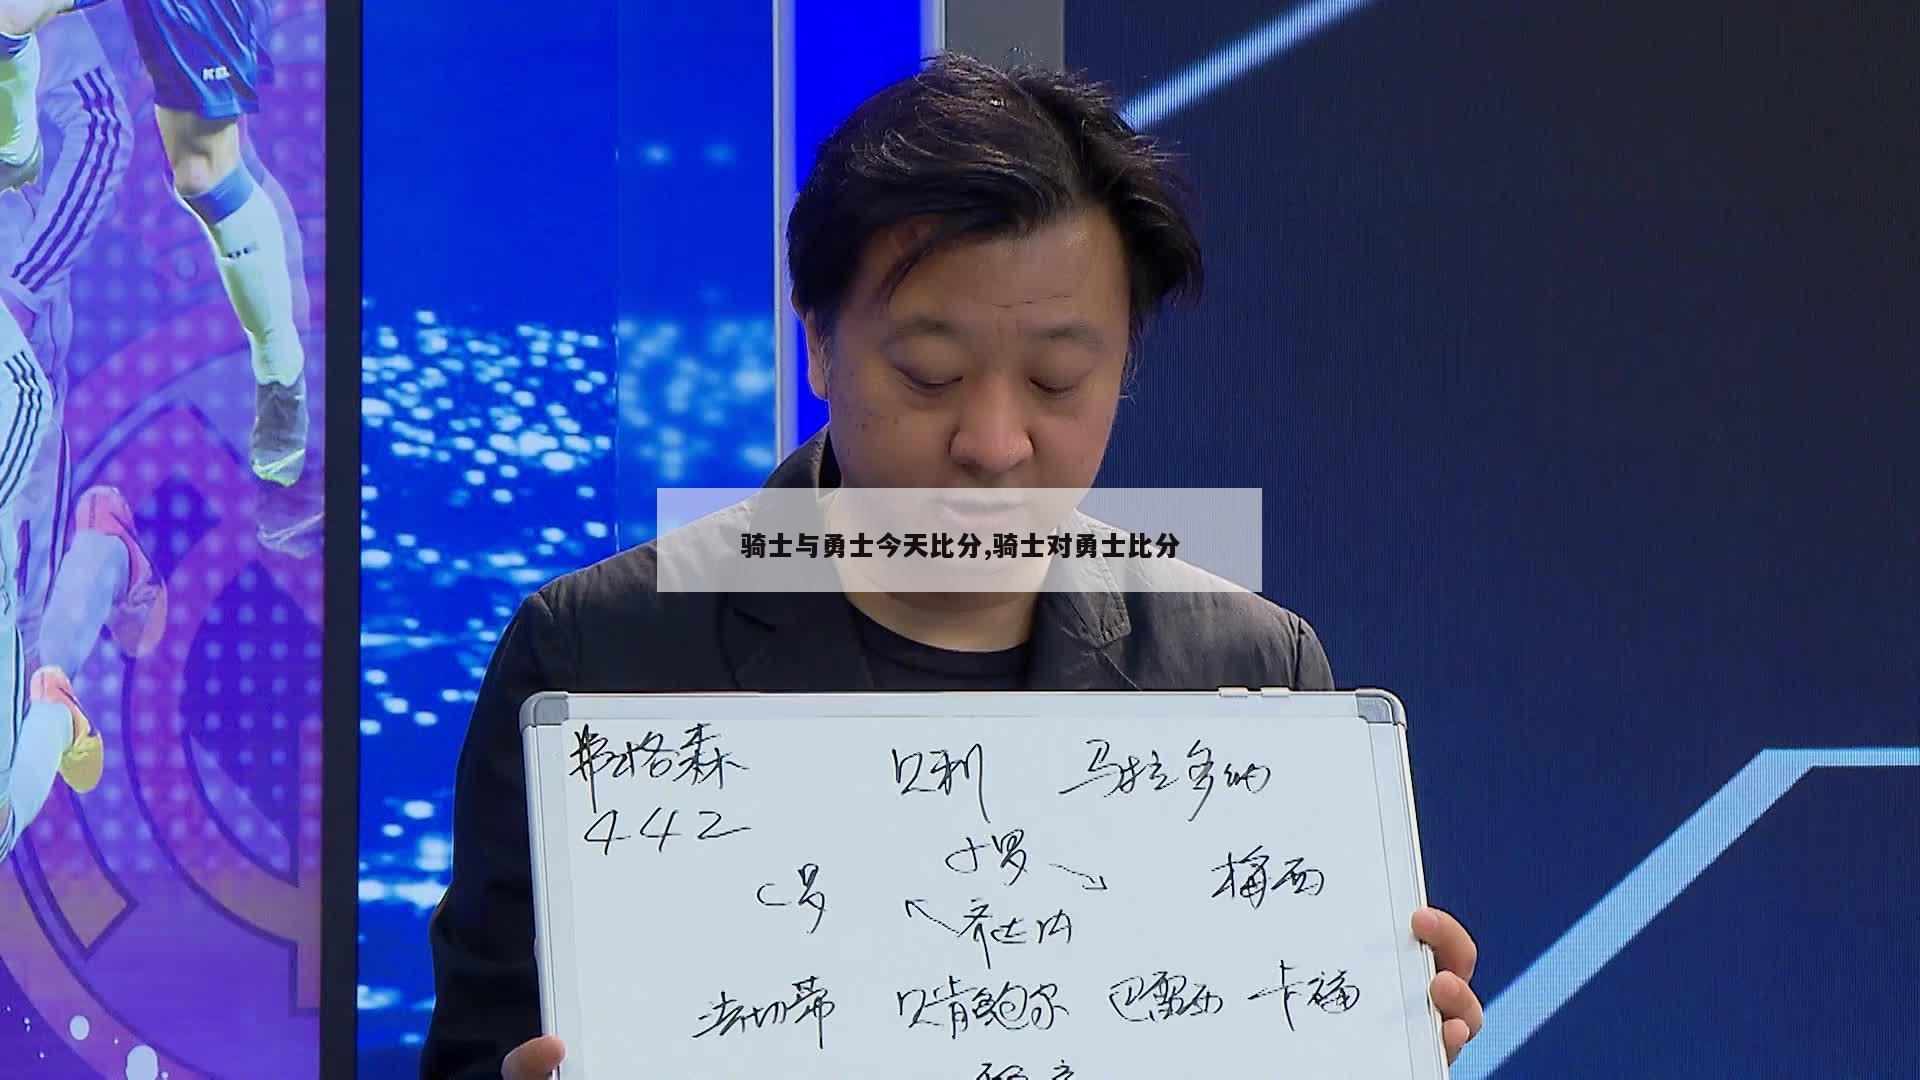 骑士与勇士今天比分,骑士对勇士比分
弗格森 贝利 马拉多纳
442
小罗
C罗 梅西
齐达内
法切蒂 贝肯鲍尔 巴雷西 卡福